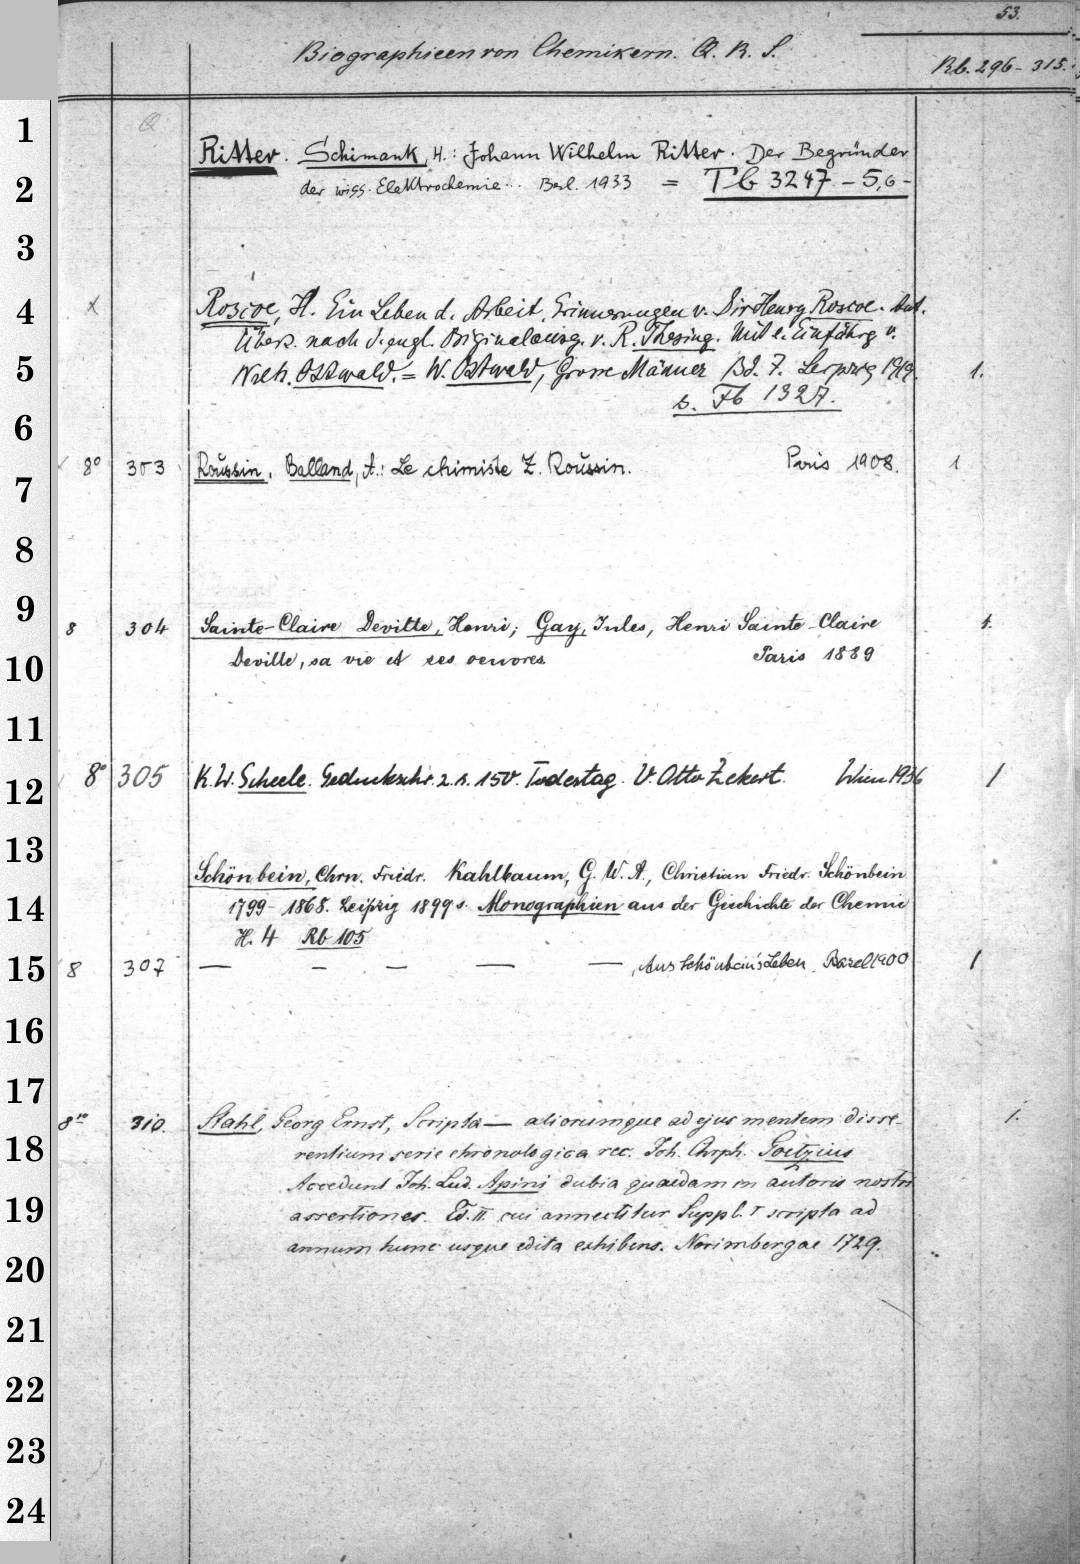 53.
Biographieen von Chemikern. Q. R. S.
Rb. 296 - 315.
Q
1
Ritter. Schimank, H.: Johann Wilhelm Ritter. Der Begründer
2
der wiss. Elektrochemie... Berl. 1933 = Tb 3247 - 5,6 -
3
4
x Roscoe, H. Ein Leben d. Arbeit, Erinnerungen v. Sir Henry Roscoe. Aut.
Übers. nach d. engl. Originalausg. v. R. Thesing. Mit e. Einführg v.
5
Wilh. Ostwald. = W. Ostwald, Grosse Männer Bd. 7. Leipzig 1919. 1.
s. Fb 1327.
6
8° 303 Roussin. Balland, A.: Le chimiste Z. Roussin. Paris 1908. 1
7
8
9
8 304 Sainte-Claire Deville, Henri; Gay, Jules, Henri Sainte-Claire 1.
10
Deville, sa vie et ses oeuvres. Paris 1889
11
8° 305 K. W. Scheele. Gedenkschr. z. s. 150. Todestag. V. Otto Zekert. Wien 1936 1
12
13
Schönbein, Chrn. Friedr. Kahlbaum, G. W. A., Christian Friedr. Schönbein
14
1799 - 1868. Leipzig 1899 s. Monographien aus der Geschichte der Chemie
H. 4 Rb 105
15
8 307 — — — — — , Aus Schönbein's Leben. Basel 1900 1
16
17
8° 310. Stahl, Georg Ernst, Scripta — aliorumque ad ejus mentem disse- 1.
18
rentium serie chronologica rec. Joh. Chrph. Goetzius
Accedunt Joh. Lud. Apini dubia quaedam in autoris nostri
19
assertiones. Ed. II. cui annectitur Suppl. I scripta ad
annum hunc usque edita exhibens. Norimbergae 1729.
20
21
22
23
24